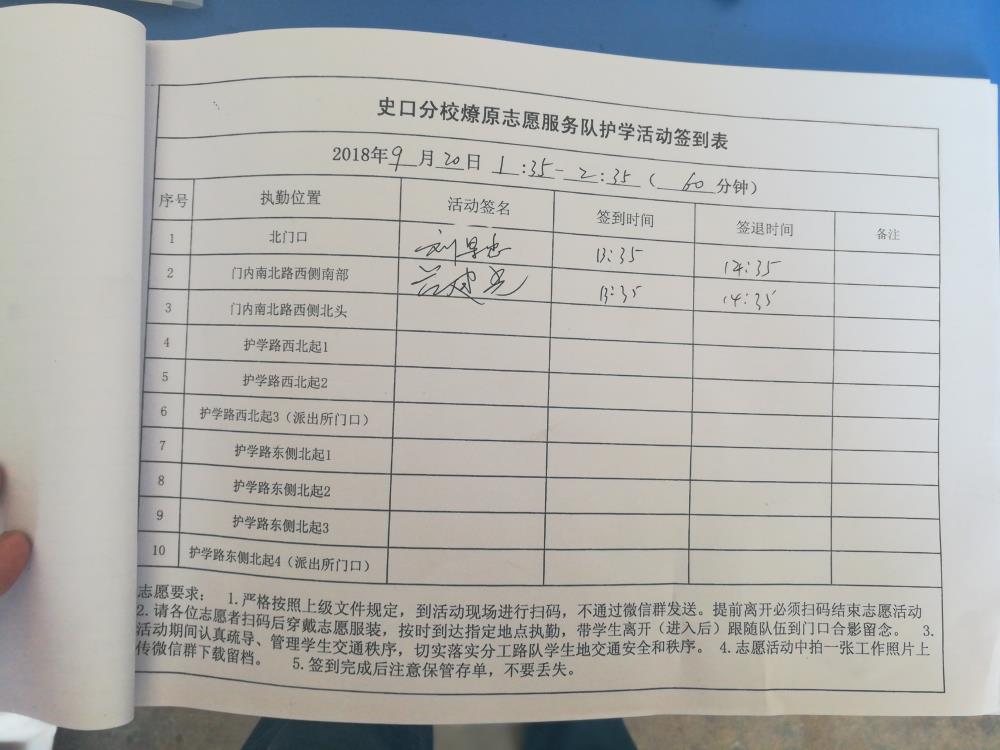 史口分校燎原志愿服务队护学活动签到表
2018年9月20日 1:35-2:35(60分钟)
序号 执勤位置 活动签名 签到时间 签退时间 备注
1 北门口 13:35 14:35
2 门内南北路西侧南部 13:35 14:35
3 门内南北路西侧北头
4 护学路西北起1
5 护学路西北起2
6 护学路西北起3(派出所门口)
7 护学路东侧北起1
8 护学路东侧北起2
9 护学路东侧北起3
10 护学路东侧北起4(派出所门口)
志愿要求: 1.严格按照上级文件规定,到活动现场进行扫码,不通过微信群发送。提前离开必须扫码结束志愿活动
2.请各位志愿者扫码后穿戴志愿服装,按时到达指定地点执勤,带学生离开(进入后)跟随队伍到门口合影留念。 3.
活动期间认真疏导、管理学生交通秩序,切实落实分工路队学生地交通安全和秩序。 4.志愿活动中拍一张工作照片上
传微信群下载留档。 5.签到完成后注意保管存单,不要丢失。